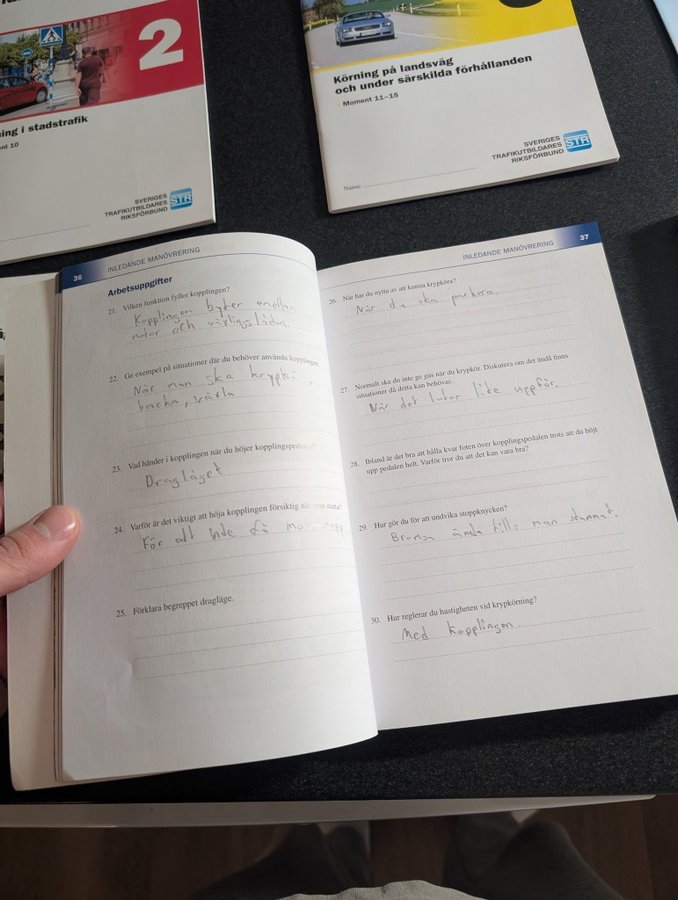 2
ing i stadstrafik
nt 10
SVERIGES
TRAFIKUTBILDARES
RIKSFÖRBUND
STR
Körning på landsväg
och under särskilda förhållanden
Moment 11–15
Namn:
SVERIGES
TRAFIKUTBILDARES
RIKSFÖRBUND
STR
36 INLEDANDE MANÖVRERING
Arbetsuppgifter
21. Vilken funktion fyller kopplingen?
Kopplingen byter emellan
motor och växligslådan.
22. Ge exempel på situationer där du behöver använda kopplingen.
När man ska krypk
backa, växla
23. Vad händer i kopplingen när du höjer kopplingspedalen?
Dragläget
24. Varför är det viktigt att höja kopplingen försiktig när man startar?
För att inte få
25. Förklara begreppet dragläge.
INLEDANDE MANÖVRERING 37
26. När har du nytta av att kunna krypköra?
När du ska parkera.
27. Normalt ska du inte ge gas när du krypkör. Diskutera om det ändå finns
situationer då detta kan behövas.
När det lutar lite uppför.
28. Ibland är det bra att hålla kvar foten över kopplingspedalen trots att du höjt
upp pedalen helt. Varför tror du att det kan vara bra?
29. Hur gör du för att undvika stoppknycken?
Bromsa ända tills man stannat.
30. Hur reglerar du hastigheten vid krypkörning?
Med kopplingen.